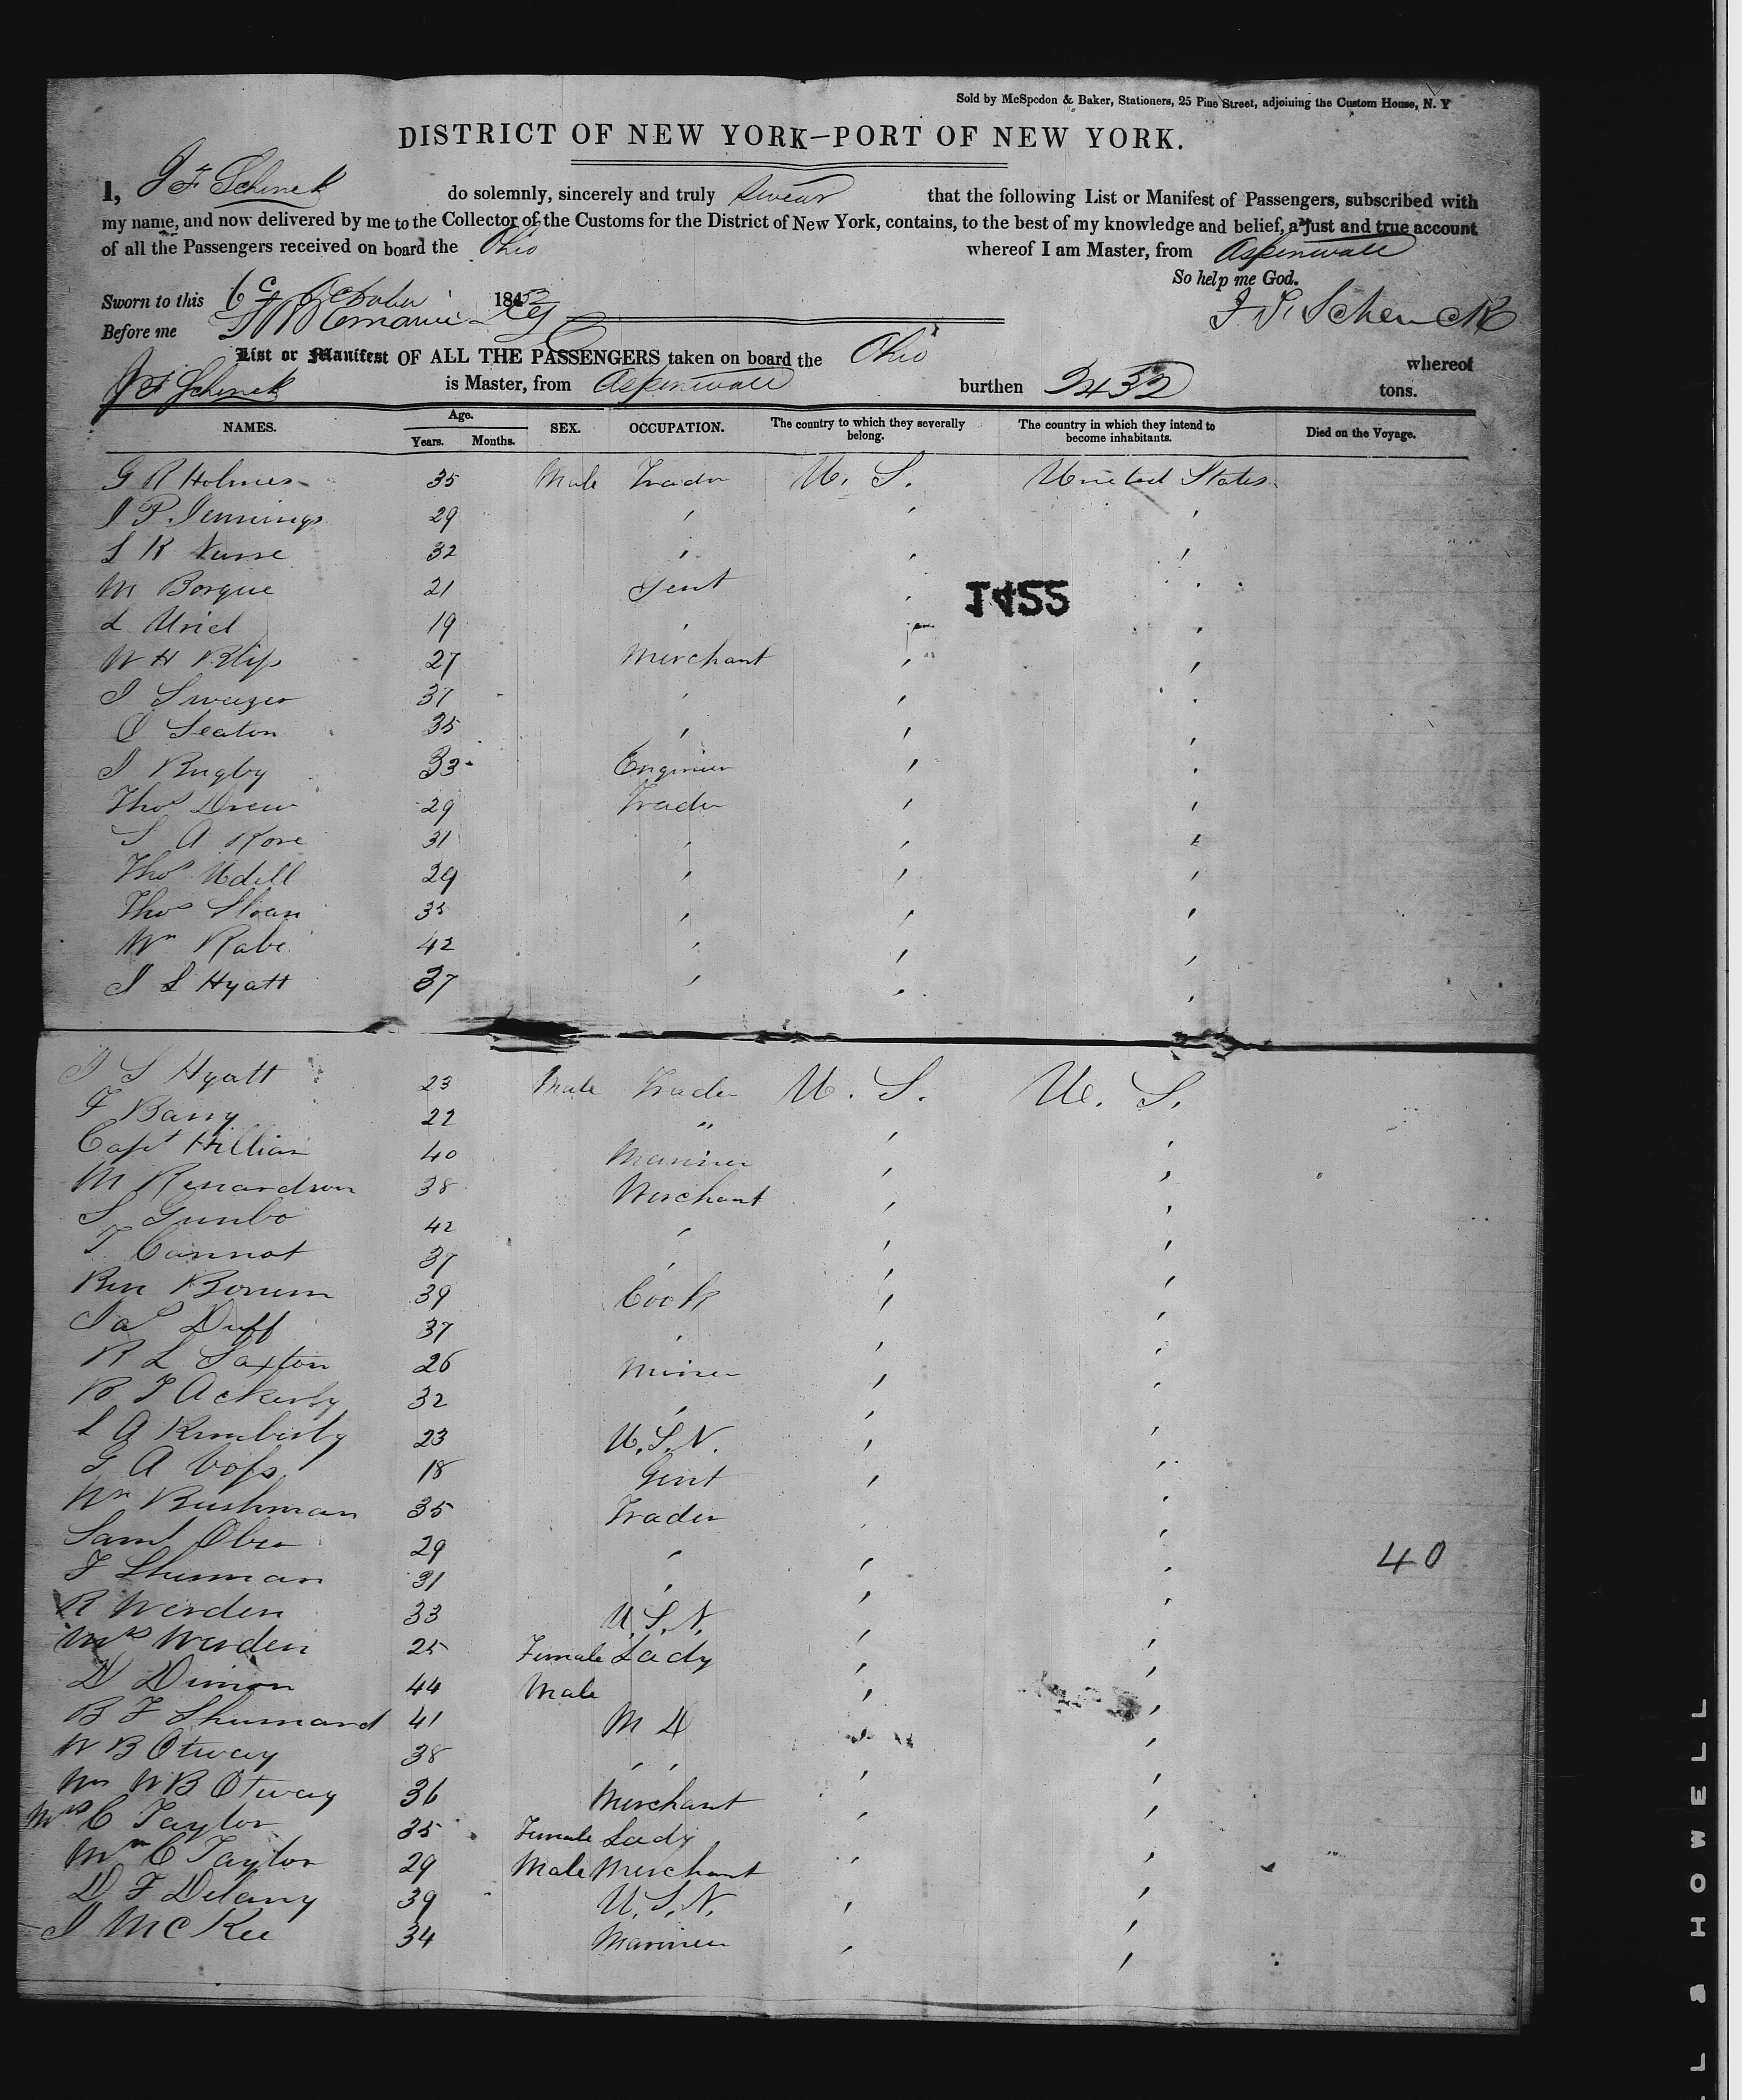 Sold by McSpedon & Baker, Stationers, 25 Pine Street, adjoining the Custom House, N. Y
DISTRICT OF NEW YORK—PORT OF NEW YORK.
I, J F Schenck do solemnly, sincerely and truly swear that the following List or Manifest of Passengers, subscribed with
my name, and now delivered by me to the Collector of the Customs for the District of New York, contains, to the best of my knowledge and belief, a just and true account
of all the Passengers received on board the Ohio whereof I am Master, from Aspinwall
So help me God.
Sworn to this 6 October 1852
Before me
J. F. Schenck
List or Manifest OF ALL THE PASSENGERS taken on board the Ohio whereof
J F Schenck is Master, from Aspinwall burthen 2432 tons.
NAMES. Age. Years. Months. SEX. OCCUPATION. The country to which they severally belong. The country in which they intend to become inhabitants. Died on the Voyage.
G R Holmes 35 Male Trader U. S. United States
J P Jennings 29 ,
L K Nurse 32 ,
M Borque 21 Gent
1455
L Uriel 19 ,
W H Klip 27 Merchant
J Swazer 37 ,
O Seaton 35 ,
J Bugby 33 Engineer
Thos Drew 29 Trader
S A Rose 31 ,
Thos Udell 29 ,
Thos Sloan 35 ,
Wm Rabe 42 ,
J L Hyatt 37 ,
J S Hyatt 23 Male Trader U. S. U. S.
F Barry 22 "
Capt Hillian 40 Mariner
M Renardson 38 Merchant
S Gunbo 42 ,
T Cannot 37 ,
Ben Borum 39 Cook
Jas Duff 37 ,
R L Saxton 26 Miner
B T Ackerly 32 ,
L A Kimberly 23 U.S.N.
G A 18 Gent
Wm Bushman 35 Trader
Saml Ober 29 ,
F Shuman 31 ,
40
R Werden 33 U.S.N.
Mrs Werden 25 Female Lady
D Dimon 44 Male
B F Shumard 41 M D
W B Otway 38 , ,
W B Otway 36 Merchant
Mrs C Taylor 35 Female Lady
Wm C Taylor 29 Male Merchant
D F Delany 39 U.S.N.
J McKee 34 Mariner
HOWELL